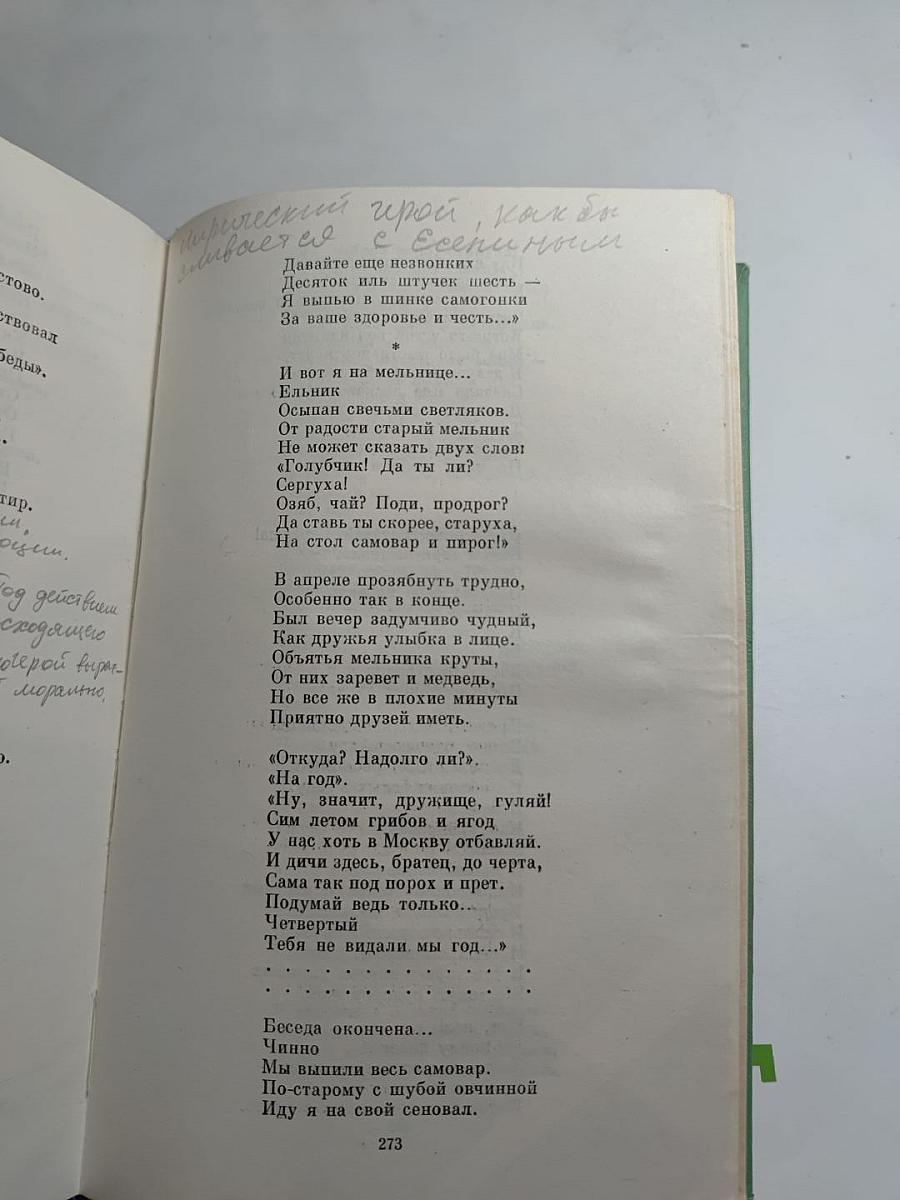 стово.
ствовал
беды».
тир.
Под действием
сходящего
морально,
лирический герой, как бы
сливается с Есениным
Давайте еще незвонких
Десяток иль штучек шесть —
Я выпью в шинке самогонки
За ваше здоровье и честь...»
*
И вот я на мельнице...
Ельник
Осыпан свечьми светляков.
От радости старый мельник
Не может сказать двух слов:
«Голубчик! Да ты ли?
Сергуха!
Озяб, чай? Поди, продрог?
Да ставь ты скорее, старуха,
На стол самовар и пирог!»
В апреле прозябнуть трудно,
Особенно так в конце.
Был вечер задумчиво чудный,
Как дружья улыбка в лице.
Объятья мельника круты,
От них заревет и медведь,
Но все же в плохие минуты
Приятно друзей иметь.
«Откуда? Надолго ли?».
«На год».
«Ну, значит, дружище, гуляй!
Сим летом грибов и ягод
У нас хоть в Москву отбавляй.
И дичи здесь, братец, до черта,
Сама так под порох и прет.
Подумай ведь только...
Четвертый
Тебя не видали мы год...»
. . . . . . . . . . . . . .
. . . . . . . . . . . . . .
Беседа окончена...
Чинно
Мы выпили весь самовар.
По-старому с шубой овчинной
Иду я на свой сеновал.
273